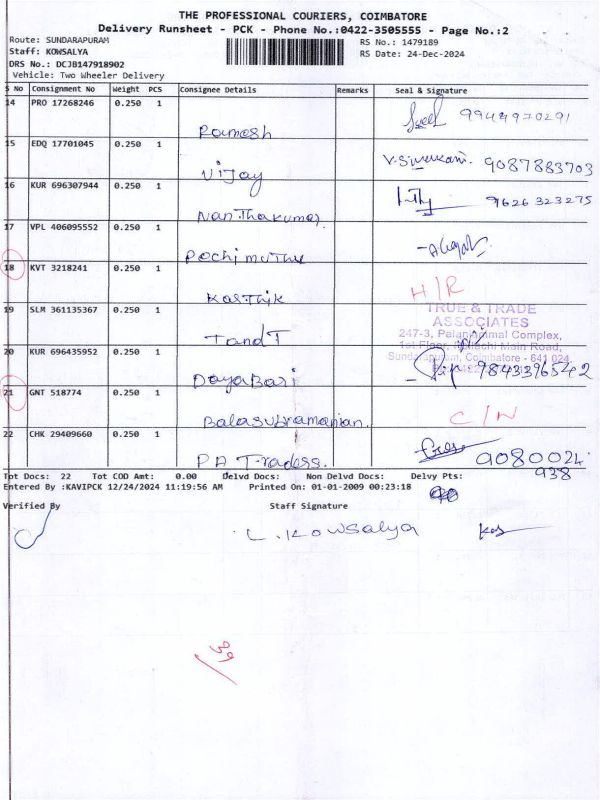 THE PROFESSIONAL COURIERS, COIMBATORE
Delivery Runsheet - PCK - Phone No.:0422-3505555 - Page No.:2
Route: SUNDARAPURAM
Staff: KOWSALYA
DRS No.: DCJB147918902
Vehicle: Two Wheeler Delivery
RS No.: 1479189
RS Date: 24-Dec-2024
S No Consignment No Weight PCS Consignee Details Remarks Seal & Signature
14 PRO 17268246 0.250 1 Ramesh 9944970291
15 EDQ 17701045 0.250 1 Vijay V. Sivakami. 9087883703
16 KUR 696307944 0.250 1 Nanthakumar 9626323275
17 VPL 406095552 0.250 1 Pochimuthu
18 KVT 3218241 0.250 1 Karthik H/R
19 SLM 361135367 0.250 1 TandT
TRUE & TRADE
ASSOCIATES
247-3, Palaniammal Complex,
1st Floor, Pollachi Main Road,
Sundarapuram, Coimbatore - 641 024
20 KUR 696435952 0.250 1 DayaBari 9843396542
21 GNT 518774 0.250 1 Balasubramanian. C/N
22 CHK 29409660 0.250 1 PA Tradess. 9080024
938
Tot Docs: 22 Tot COD Amt: 0.00 Delvd Docs: Non Delvd Docs: Delvy Pts:
Entered By :KAVIPCK 12/24/2024 11:19:56 AM Printed On: 01-01-2009 00:23:18
Verified By Staff Signature
L. Kowsalya
39